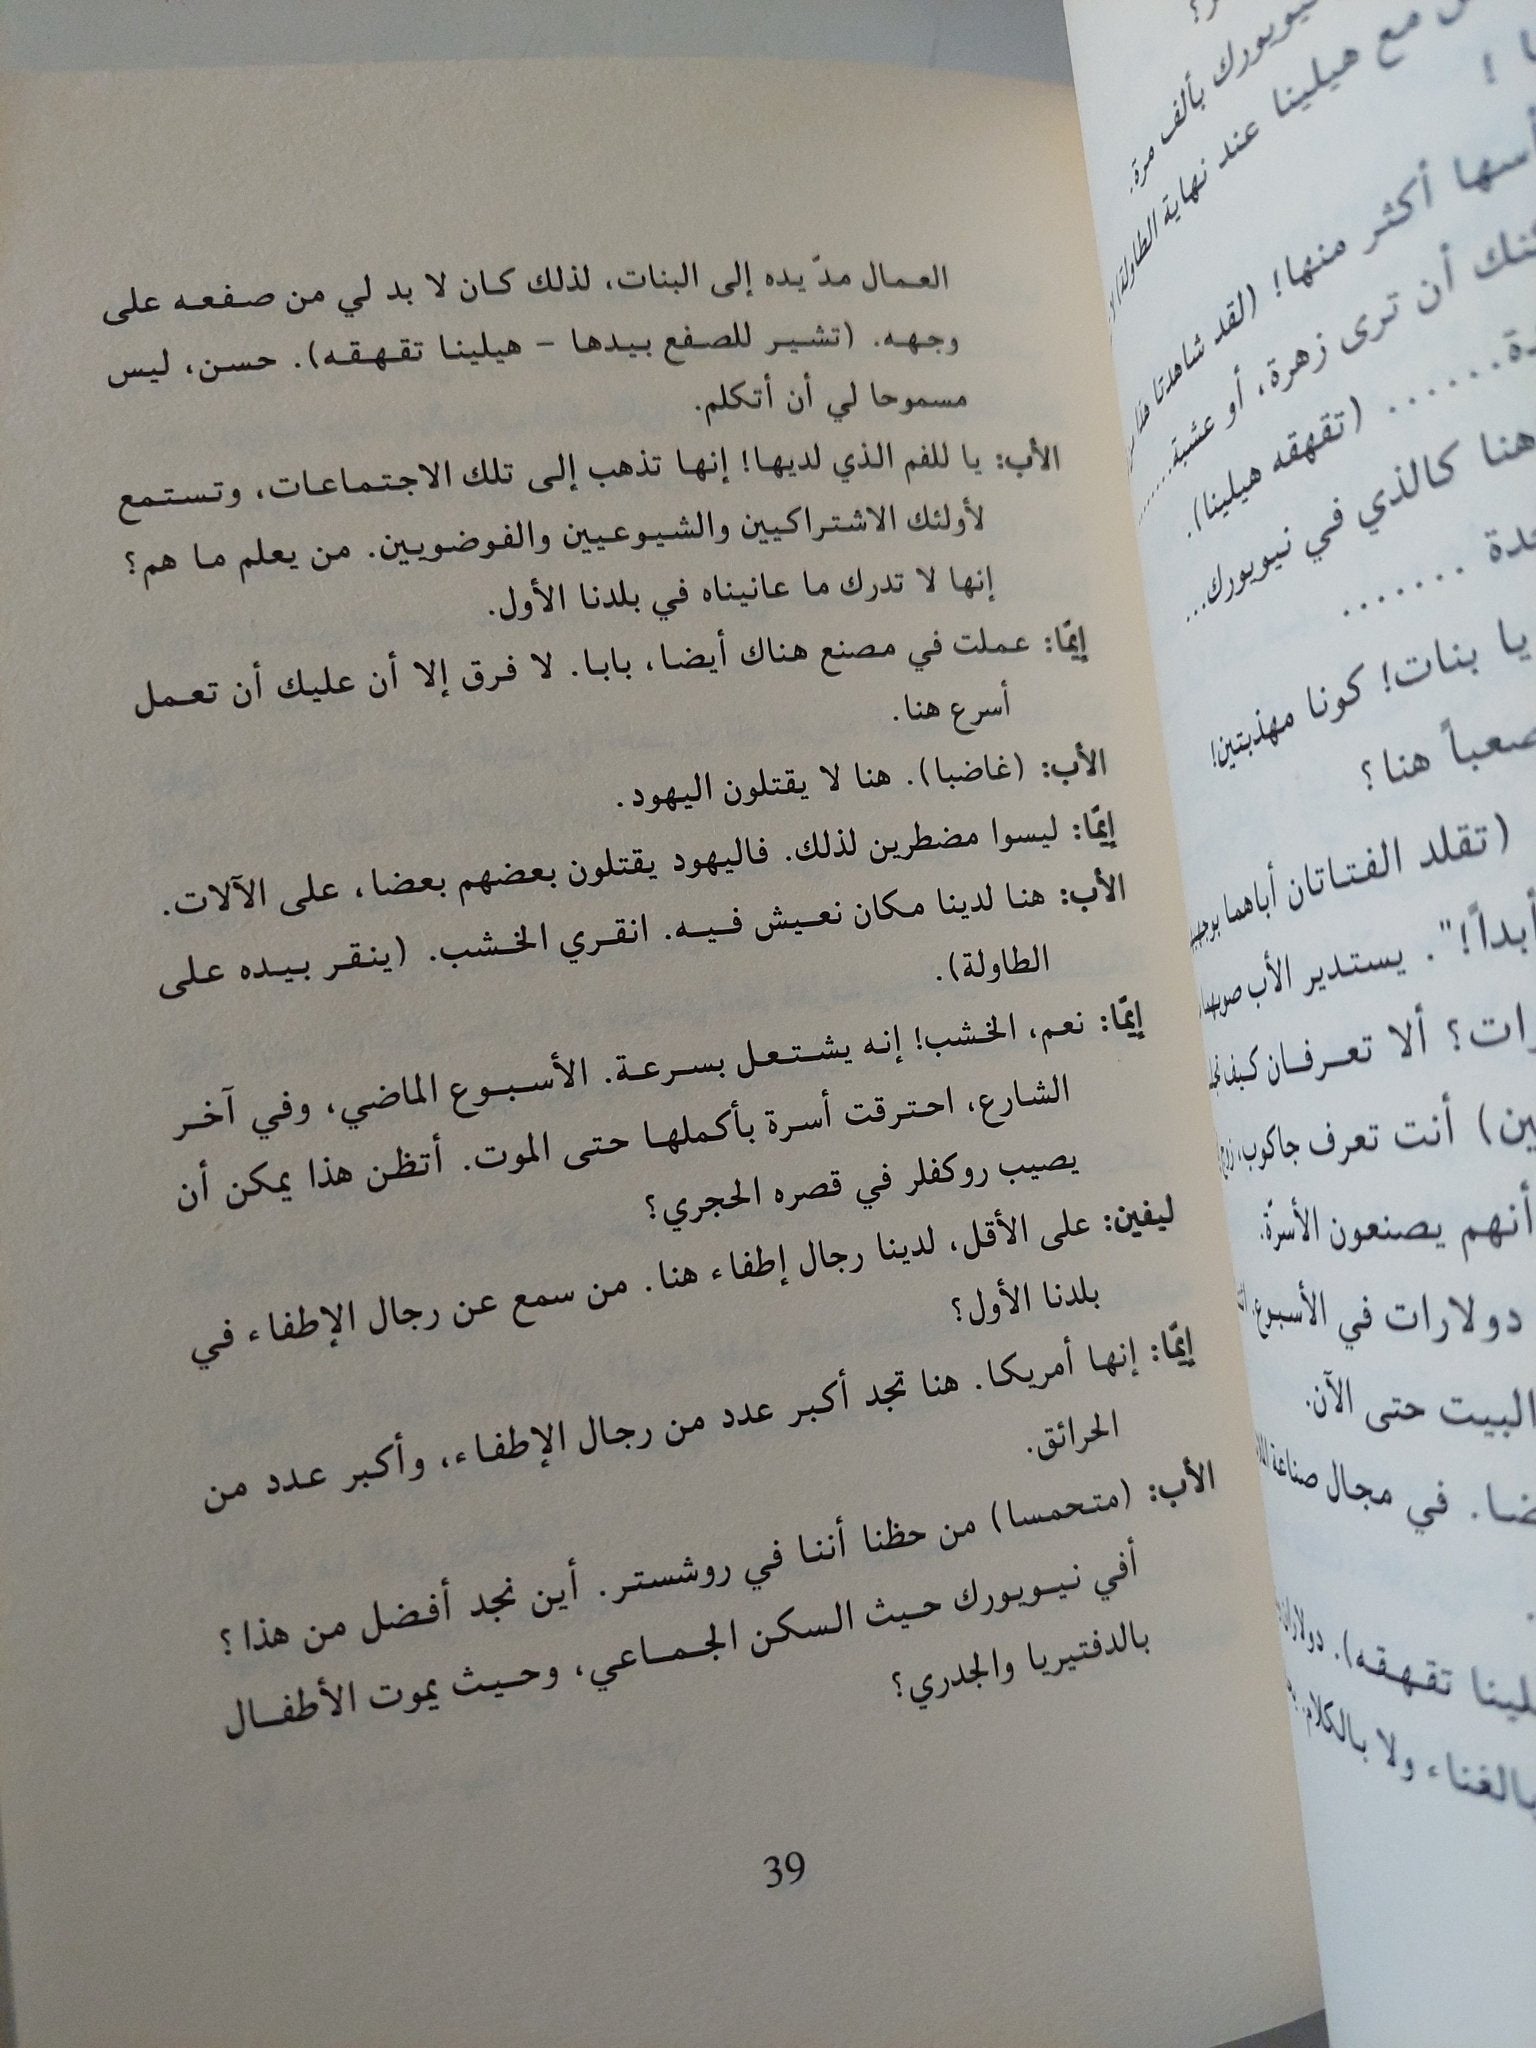 العمال مدّ يده إلى البنات، لذلك كان لا بد لي من صفعه على
وجهه. (تشير للصفع بيدها – هيلينا تقهقه). حسن، ليس
مسموحا لي أن أتكلم.
الأب: يا للفم الذي لديها! إنها تذهب إلى تلك الاجتماعات، وتستمع
لأولئك الاشتراكيين والشيوعيين والفوضويين. من يعلم ما هم؟
إنها لا تدرك ما عانيناه في بلدنا الأول.
إيمّا: عملت في مصنع هناك أيضا، بابا. لا فرق إلا أن عليك أن تعمل
أسرع هنا.
الأب: (غاضبا). هنا لا يقتلون اليهود.
إيمّا: ليسوا مضطرين لذلك. فاليهود يقتلون بعضهم بعضا، على الآلات.
الأب: هنا لدينا مكان نعيش فيه. انقري الخشب. (ينقر بيده على
الطاولة).
إيمّا: نعم، الخشب! إنه يشتعل بسرعة. الأسبوع الماضي، وفي آخر
الشارع، احترقت أسرة بأكملها حتى الموت. أتظن هذا يمكن أن
يصيب روكفلر في قصره الحجري؟
ليفين: على الأقل، لدينا رجال إطفاء هنا. من سمع عن رجال الإطفاء في
بلدنا الأول؟
إيمّا: إنها أمريكا. هنا تجد أكبر عدد من رجال الإطفاء، وأكبر عدد من
الحرائق.
الأب: (متحمسا) من حظنا أننا في روشستر. أين نجد أفضل من هذا؟
أفي نيويورك حيث السكن الجماعي، وحيث يموت الأطفال
بالدفتيريا والجدري؟
39
نيويورك بألف مرة.
مع هيلينا عند نهاية الطاولة)
!
أكثر منها! (لقد شاهدتا هذا
أن ترى زهرة، أو عشبة........
...... (تقهقه هيلينا).
هنا كالذي في نيويورك...
.......
يا بنات! كونا مهذبتين!
هنا؟
(تقلد الفتاتان أباهما
أبداً!". يستدير الأب
؟ ألا تعرفان كيف
) أنت تعرف جاكوب، زوج
أنهم يصنعون الأسرّة.
دولارات في الأسبوع.
البيت حتى الآن.
. في مجال صناعة
تقهقه). دولارات
بالغناء ولا بالكلام.